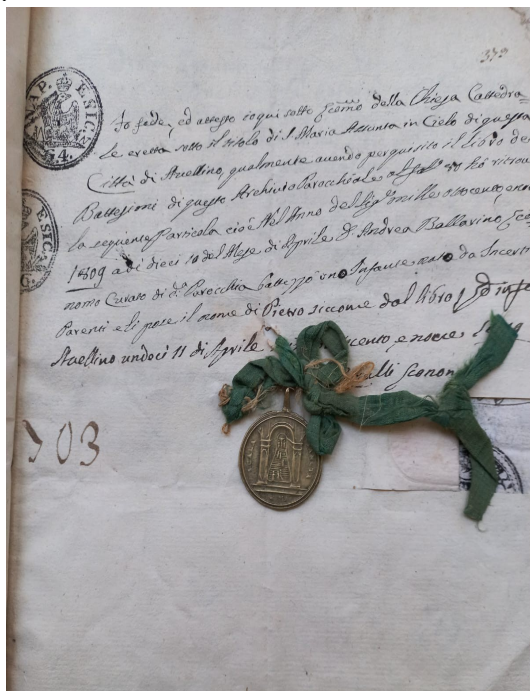 373
NAP. E SICI
G. 4.
Io fede, ed attesto io qui sotto della Chiesa Cattedra
le eretta sotto il titolo di S. Maria Assunta in Cielo di questa
Città di Avellino, qualmente avendo perquisito il libro dei
Battesimi di questo Archivio Parocchiale ho ritrovato
la sequente Particola cioè Nel Anno del Sig.re mille ottocento, e nove
E SICI
1809 a di dieci 10 del Mese di Aprile D. Andrea Ballarino Eco
nomo Curato di d.a Parocchia battezzò uno Infante nato da Incerti
Parenti e li pose il nome di Pietro siccome dal libro
Avellino undeci 11 di Aprile cento, e nove
Econom
703